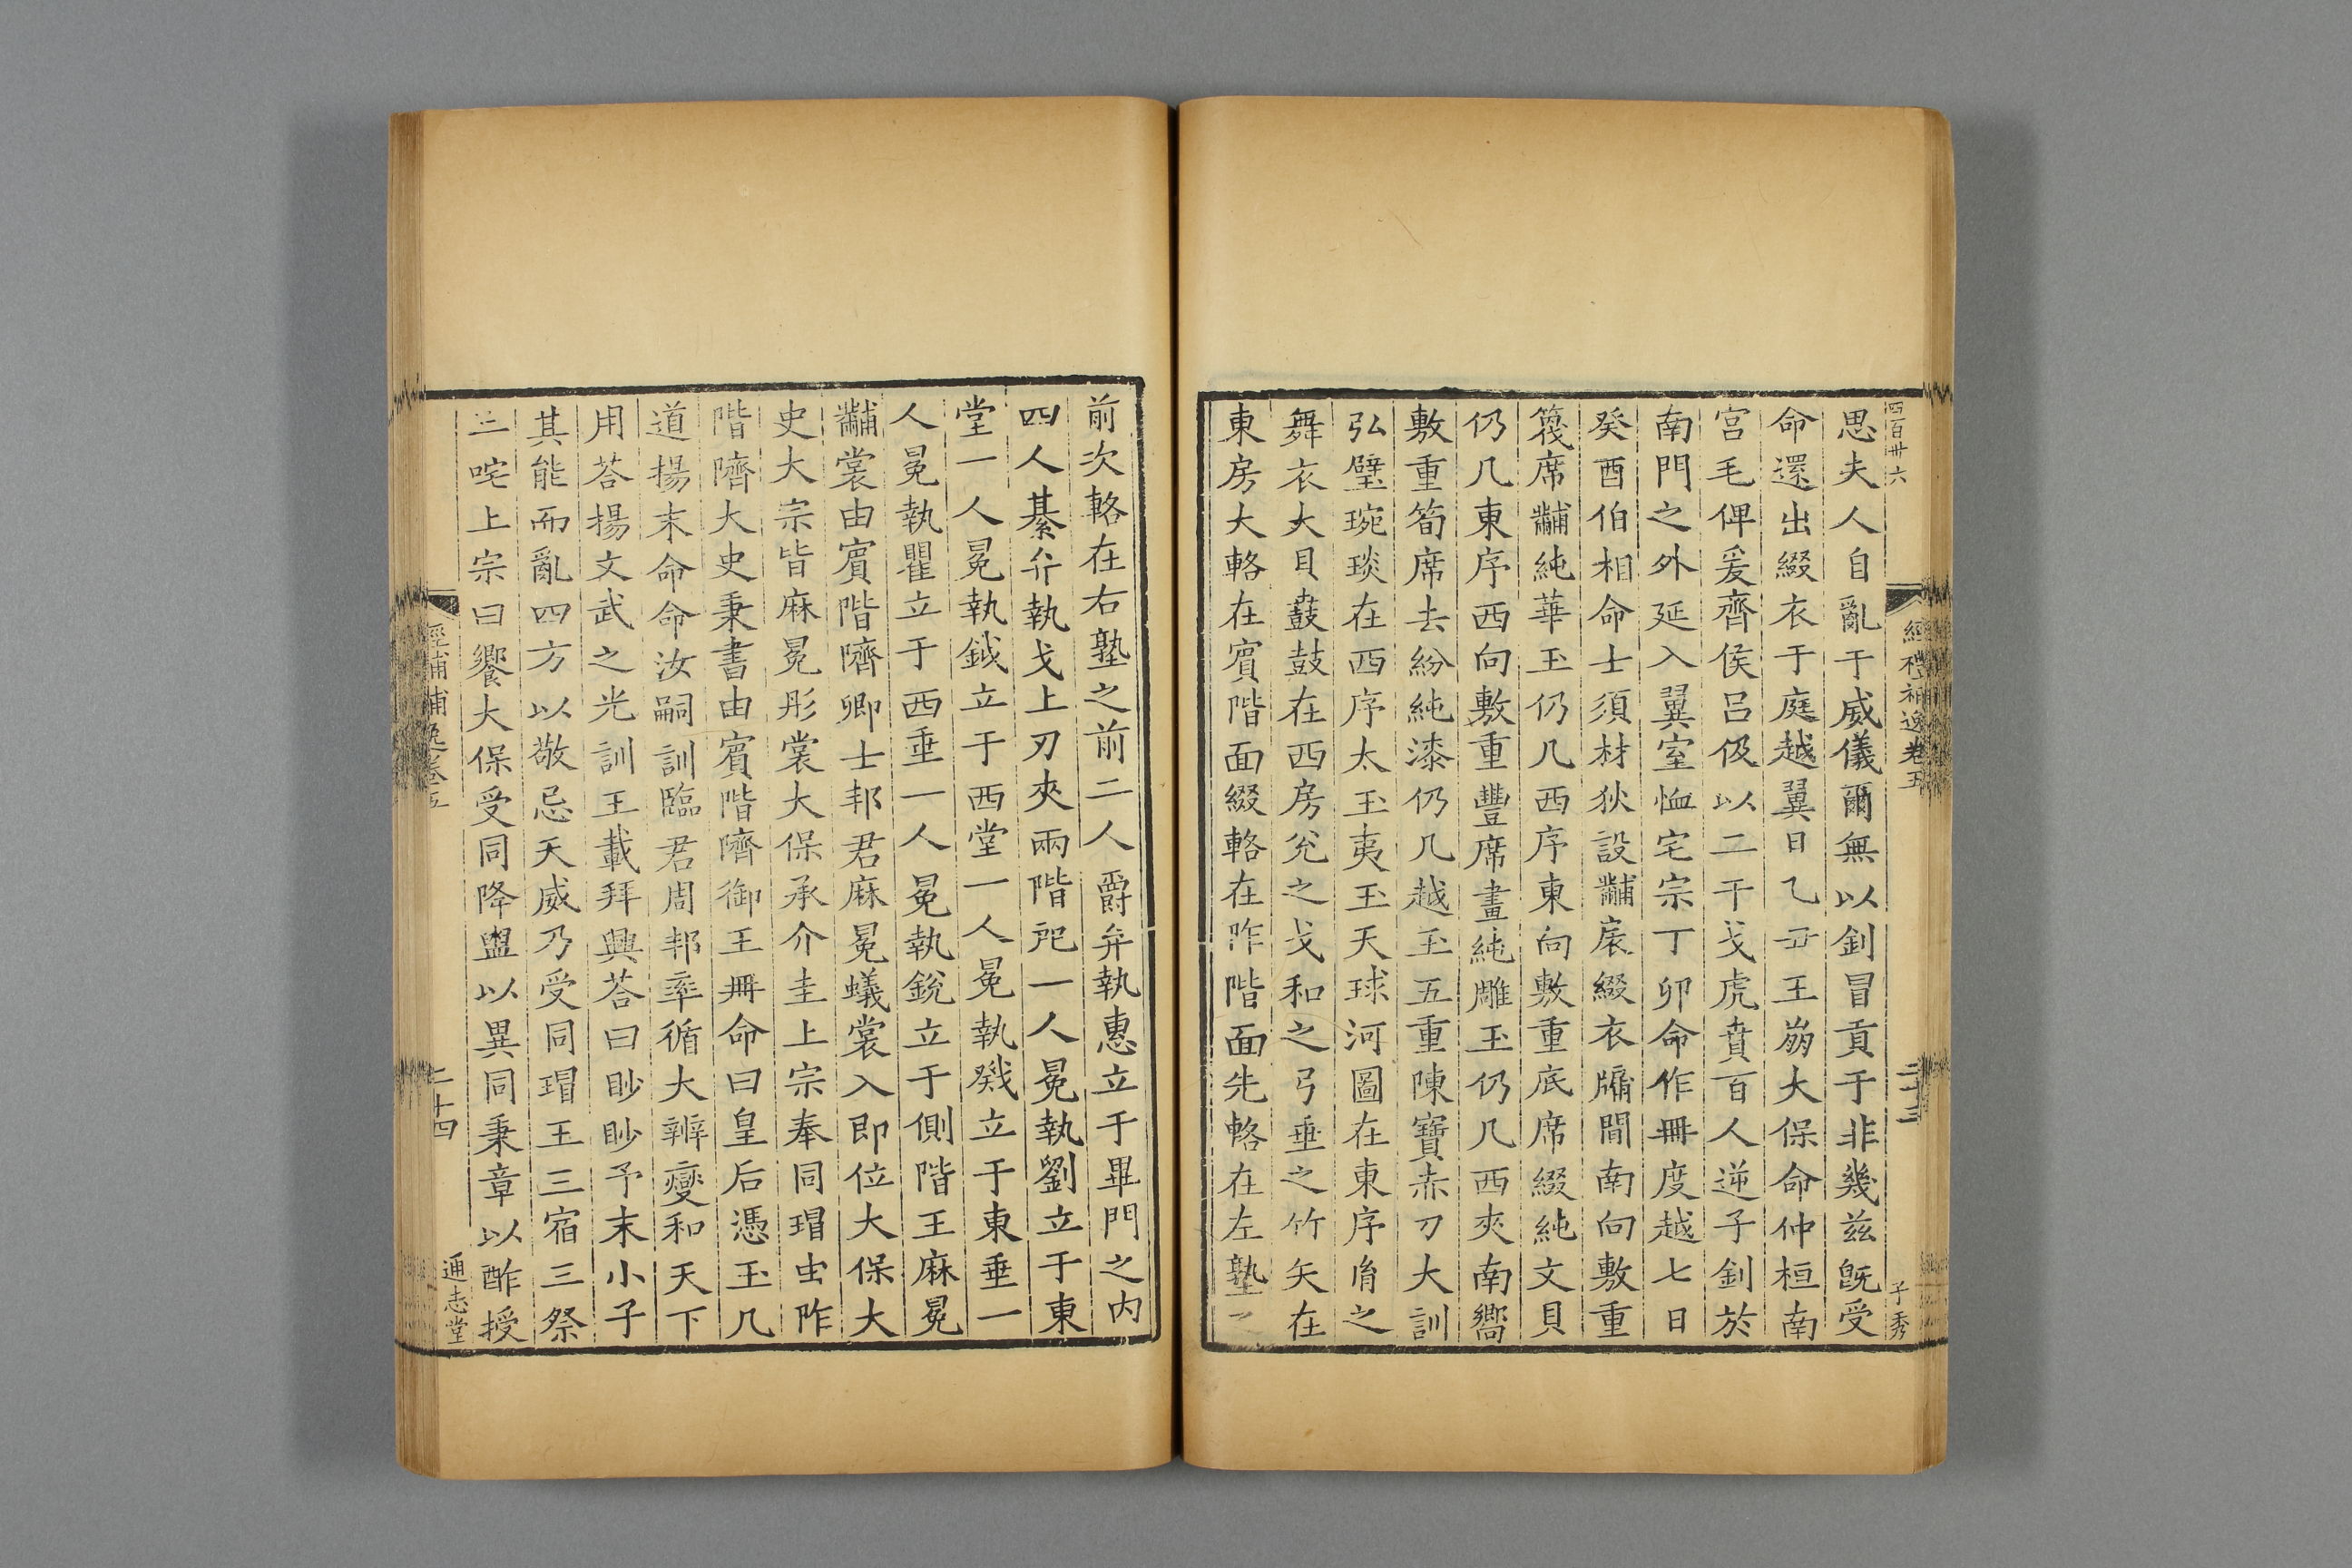 四百卅六
經禮補逸卷五
二十三
子秀
思夫人自亂于威儀爾無以釗冒貢于非幾茲旣受
命還出綴衣于庭越翼日乙丑王崩大保命仲桓南
宮毛俾爰齊侯呂伋以二干戈虎賁百人逆子釗於
南門之外延入翼室恤宅宗丁卯命作冊度越七日
癸酉伯相命士須材狄設黼扆綴衣牖間南向敷重
篾席黼純華玉仍几西序東向敷重底席綴純文貝
仍几東序西向敷重豐席畫純雕玉仍几西夾南嚮
敷重筍席玄紛純漆仍几越玉五重陳寶赤刀大訓
弘璧琬琰在西序太玉夷玉天球河圖在東序胤之
舞衣大貝鼖鼓在西房兊之戈和之弓垂之竹矢在
東房大輅在賓階面綴輅在阼階面先輅在左塾之
前次輅在右塾之前二人爵弁執惠立于畢門之內
四人綦弁執戈上刃夾兩階戺一人冕執劉立于東
堂一人冕執鉞立于西堂一人冕執戣立于東垂一
人冕執瞿立于西垂一人冕執銳立于側階王麻冕
黼裳由賓階隮卿士邦君麻冕蟻裳入即位大保大
史大宗皆麻冕彤裳大保承介圭上宗奉同瑁由阼
階隮大史秉書由賓階隮御王冊命曰皇后憑玉几
道揚末命命汝嗣訓臨君周邦率循大辨燮和天下
用荅揚文武之光訓王載拜興荅曰眇眇予末小子
其能而亂四方以敬忌天威乃受同瑁王三宿三祭
三咤上宗曰饗大保受同降盥以異同秉章以酢授
經補補逸卷五
二十四
通志堂